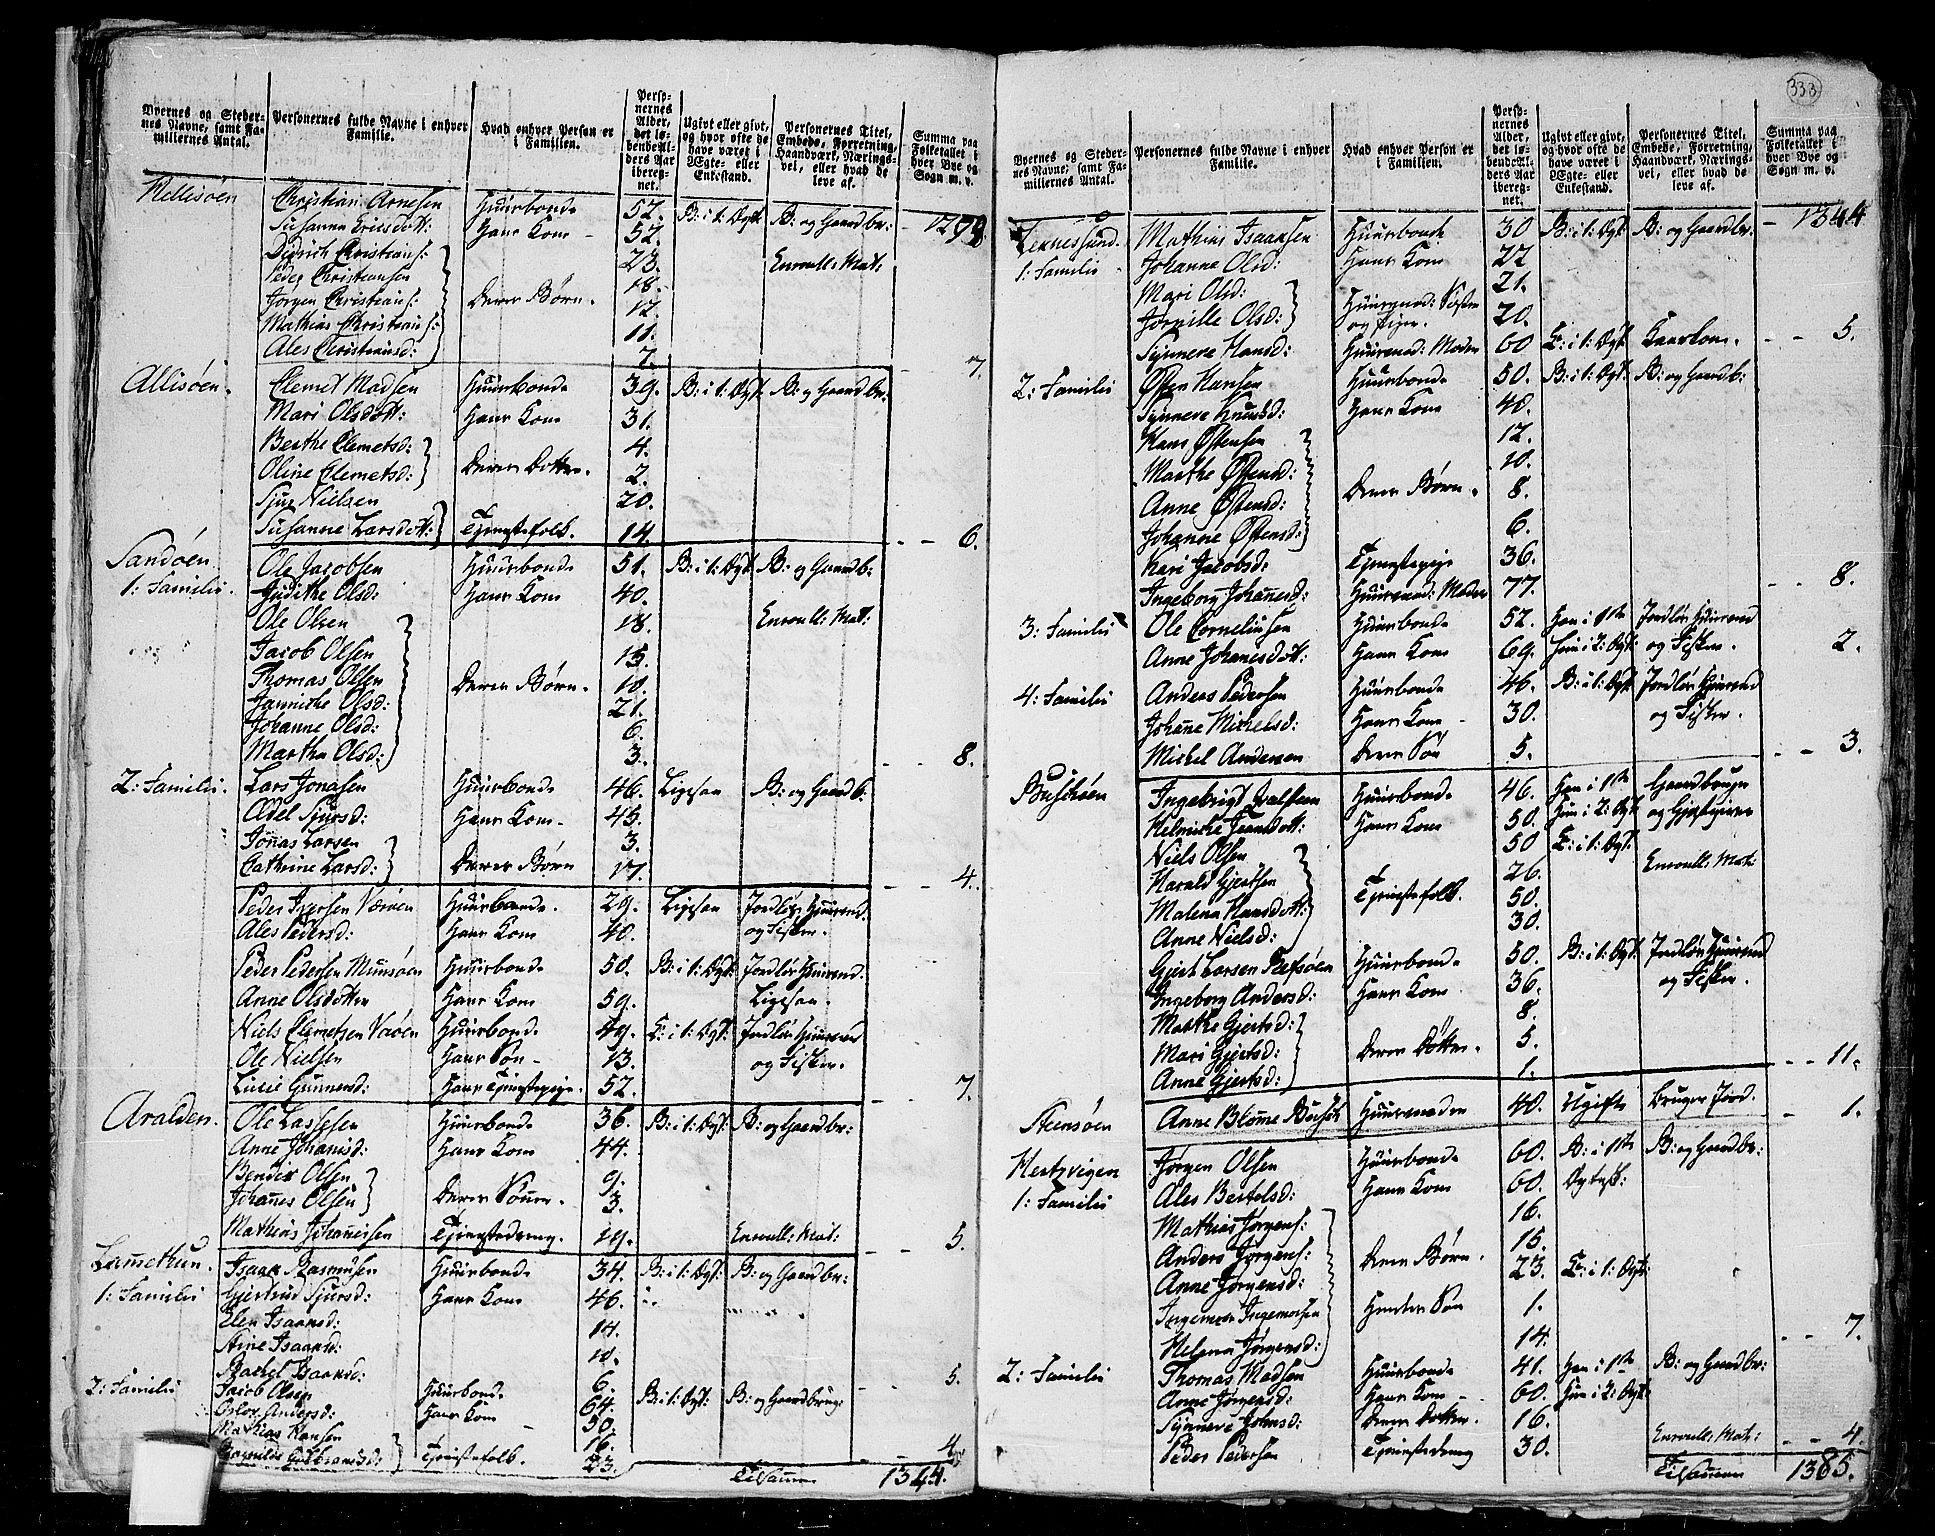 333
Byernes og Steder-
nes Navne, samt Fa-
milliernes Antal.
Personernes fulde Navne i enhver
Familie.
Hvad enhver Person er
i Familien.
Perso-
nernes
Alder,
det lø-
bende Al-
ders Aar
ibereg-
net.
Ugivt eller givt,
og hvor ofte de
have været i
Ægte- eller
Enkestand.
Personernes Titel,
Embede, Forretning,
Haandværk, Nærings-
vei, eller hvad de
leve af.
Summa paa
Folketallet i
hver Bye og
Sogn m. v.
Mellisöen Christian Arnesen Huusbonde 52. B: i 1: Ægt: B: og Gaardbr: 1299
Susanna Ericsdott: Hans Kone 52.
Didrich Christians: 23. Enroull: Mat:
Peder Christiansen 18.
Jørgen Christians: Deres Børn. 12.
Mathias Christians: 11.
Ales Christiansd: 7. 7.
Allisöen. Clemet Madsen Huusbonde 39. B: i 1: Ægt: B: og Gaardbr:
Mari Olsdott: Hans Kone 31.
Berthe Clemetsd: 4.
Oline Clemetsd: Deres Dotter. 2.
Sjur Nielsen 20.
Susanne Larsdott: Tjenestefolk. 14. 6.
Sandöen Ole Jacobsen Huusbonde 51. B: i 1: Ægt B: og Gaardb:
1: Familie. Judithe Olsd: Hans Kone 40.
Ole Olsen 18. Enroull: Mat:
Jacob Olsen 15.
Thomas Olsen Deres Børn. 10.
Jannicke Olsd: 21.
Johanne Olsd: 6.
Martha Olsd: 3. 8.
2: Familie. Lars Jonasen Huusbonde 46. Ligesaa B: og Gaardb:
Adel Sjursd: Hans Kone. 45.
Jonas Larsen 3.
Cathrine Larsd: Deres Børn 17. 4.
Peder Iversen Værøen Huusbonde. 29. Ligesaa Jordløs Huusmd.
Ales Pedersd: Hans Kone 40. og Fisker.
Peder Pedersen Muusøen Huusbonde 50. B: i 1: Ægt: Jordløs Huusmd.
Anne Olsdotter Hans Kone 59. Ligesaa.
Niels Clemetsen Værøen Huusbonde. 49. E: i 1: Ægt: Jordløs Huusmd
Ole Nielsen Hans Søn 13. og Fisker.
Lucie Gunnersd: Hans Tjenestepige. 52. 7.
Aralden. Ole Lassesen Huusbonde 36. B: i 1: Ægt: B: og Gaardbr:
Anne Johanisd: Hans Kone 44.
Bendix Olsen 9.
Johanes Olsen Deres Sønner. 3.
Mathias Johannesen Tjenestedreng. 19. Enroull: Mat: 5.
Lamethun. Isaac Rasmusen Huusbonde 34. B: i 1: Ægt: B: og Gaardbr:
1: Familie Gjertrud Sjursd: Hans Kone 46.
Elen Isaacsd: 14.
Stine Isaacsd: 10.
Rachel Isaacsd: 6. 5.
2: Familie Jacob Olsen Huusbonde 64. B: i 1: Ægt: B: og Gaardbrug:
Andersd: Hans Kone 50.
Mathias Hansen 16.
Tjenestefolk. 23. 4
Tilsammen 1344.
Byernes og Steder-
nes Navne, samt Fa-
milliernes Antal.
Personernes fulde Navne i enhver
Familie.
Hvad enhver Person er
i Familien.
Perso-
nernes
Alder,
det lø-
bende Al-
ders Aar
ibereg-
net.
Ugivt eller givt,
og hvor ofte de
have været i
Ægte- eller
Enkestand.
Personernes Titel,
Embede, Forretning,
Haandværk, Nærings-
vei, eller hvad de
leve af.
Summa paa
Folketallet i
hver Bye og
Sogn m. v.
Mathias Isaacsen Huusbonde 30 B: i 1: Ægt B: og Gaardbr. 1344
1: Familie Johanne Olsd: Hans Kone 22
Mari Olsd: 21.
Jørnille Olsd: 20.
Synneve Hansd: Huusmd: Moder 60 E: i 1: Ægt 5.
2: Familie Østen Hansen Huusbonde 50. B: i 1: Ægt B: og Gaardb:
Synneve Knudsd: Hans Kone 40.
Hans Østensen 12.
Marthe Østensd: 10.
Anne Østensd: Deres Børn. 8.
Johanne Østensd: 6.
Kari Jacobsd: Tjenestepige 36.
Ingeborg Johanesd: Huusmd: Moder 77. 8.
3: Familie Ole Cornelius​en Huusbonde 52. Han i 1te Jordløs Huusmd
Anne Johanesdott: Hans Kone 69. hun i 2: Ægt: og Fisker. 2.
4: Familie Anders Pedersen Huusbonde 46. B: i 1: Ægt Jordløs Huusmd
Johane Mickelsd: Hans Kone 30. og Fisker.
Mickel Andersen Deres Søn 5. 3.
Buskøen Ingebrigt Huusbonde 46. Han i 1te Gaardbruger
Helmicke Hans Kone 50. Hun i 2: Ægt og Gjestgiver
Niels Olsen 50 E: i 1: Ægt:
Harald Gjertsen 26. Enroull: Mat:
Malena Hansdott: Tjenestefolk. 50.
Anne Nielsd: 30.
Gjert Larsen Huusbonde 50. B: i 1: Ægt. Jordløs Huusmd
Ingeborg Andersd: Hans Kone 36. og Fisker.
Marthe Gjertsd: 8.
Mari Gjertsd: Deres Døttre. 5.
Anne Gjertsd: 1. 11.
Steensöen Anne Blome Huusmoder 40. Ugift Bruger Jord. 1.
Hertzvigen Jørgen Olsen Huusbonde 60. B: i 1te B: og Gaardbr:
1: Familie Ales Bertelsd: Hans Kone 60. Ægtesk:
Mathias Jørgens: 16.
Anders Jørgens: 15.
Anne Jørgensd: Deres Børn. 23. E: i 1: Ægt:
Ingemosen Hendes Søn 1.
Helena Jørgensd: 14. 7.
2: Familie Thomas Madsen Huusbonde 41. Han i 1te B: og Gaardbr:
Anne Jørgensd: Hans Kone 60. Hun i 2: Ægt
Synneve Johnsd: Deres Dotter. 16.
Peder Pedersen Tjenestedreng 30. Enroull: Mat: 4.
Tilsammen 1385.